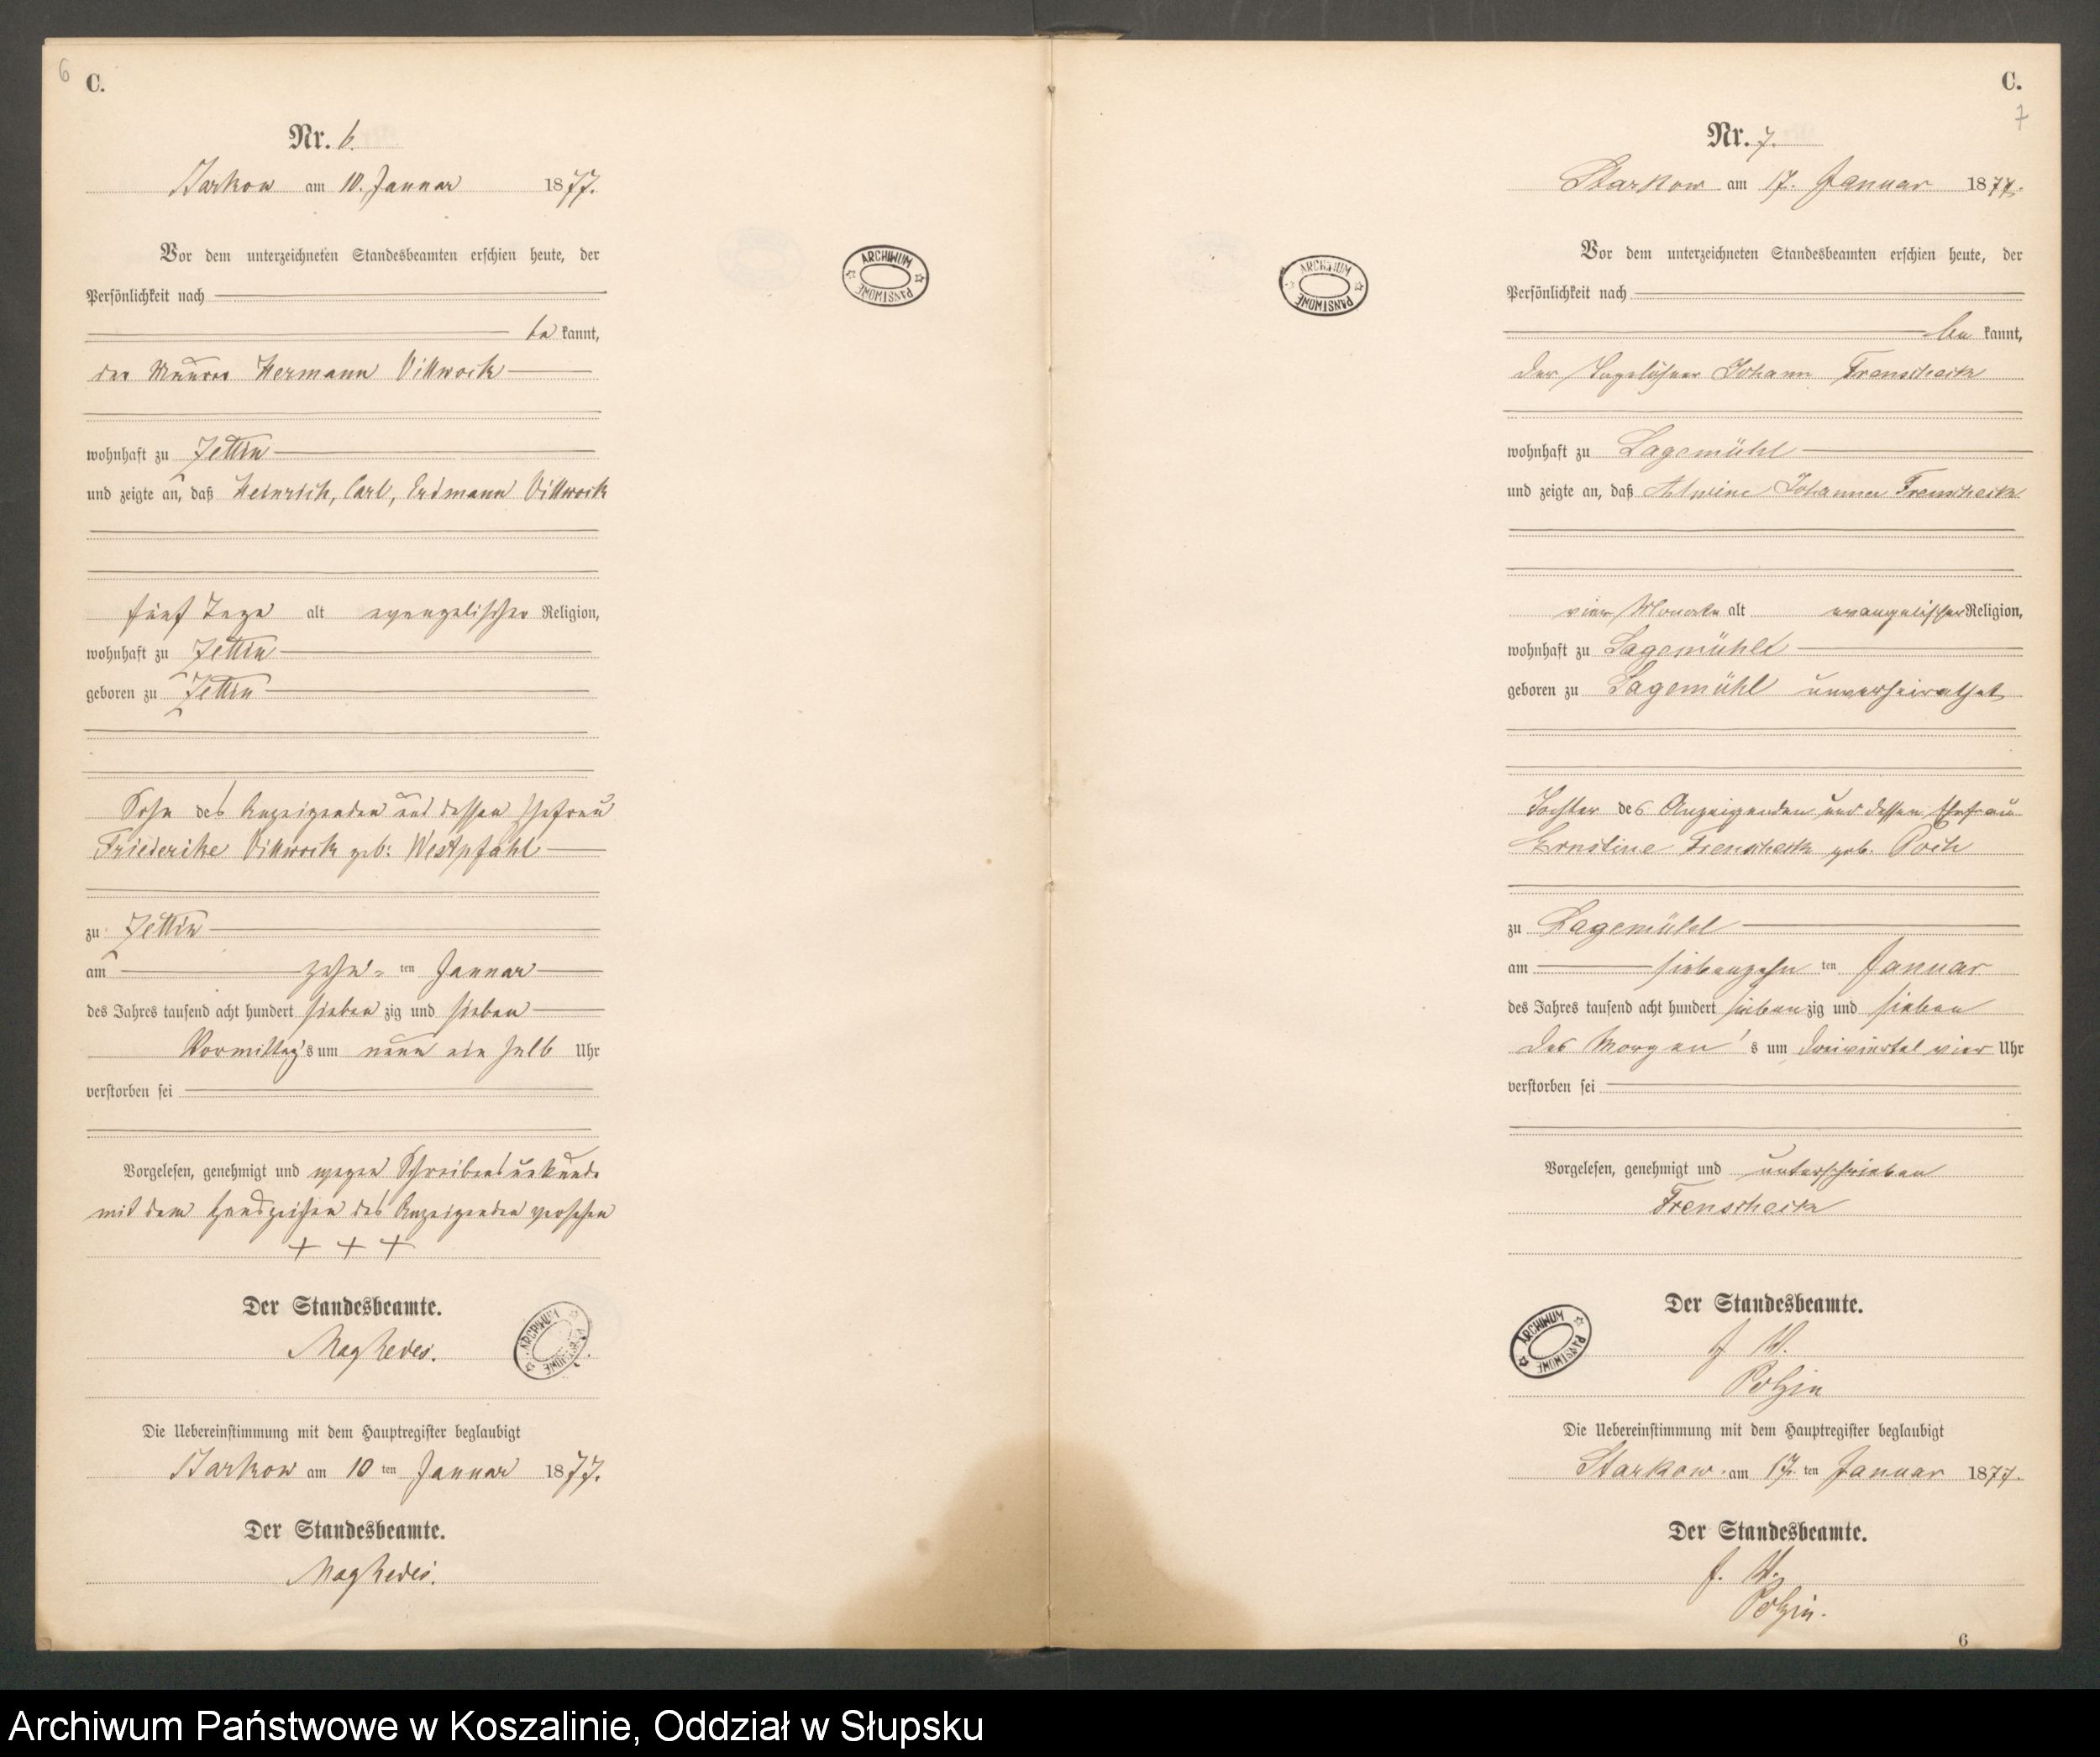 6
C.
Nr. 6.
Starkow am 10. Januar 1877.
Vor dem unterzeichneten Standesbeamten erschien heute, der
Persönlichkeit nach
be kannt,
der Maurer Hermann Villwock
wohnhaft zu Zettin
und zeigte an, daß Heinrich, Carl, Erdmann Villwock
fünf Tage alt evangelischer Religion,
wohnhaft zu Zettin
geboren zu Zettin
Sohn des Anzeigenden und dessen Ehefrau
Friederike Villwock geb: Westpfahl
zu Zettin
am zehn ten Januar
des Jahres tausend acht hundert sieben zig und sieben
Vormittag's um neun ein halb Uhr
verstorben sei
Vorgelesen, genehmigt und wegen Schreibensunkunde
mit dem Handzeichen des Anzeigenden versehen
+ + +
Der Standesbeamte.
ARCHIWUM PAŃSTWOWE
Die Uebereinstimmung mit dem Hauptregister beglaubigt
Starkow am 10 ten Januar 1877.
Der Standesbeamte.
ARCHIWUM PAŃSTWOWE
C.
7
Nr. 7.
Starkow am 17. Januar 1877.
Vor dem unterzeichneten Standesbeamten erschien heute, der
Persönlichkeit nach
be kannt,
der Tagelöhner Johann Frenscheck
wohnhaft zu Lagemühl
und zeigte an, daß Alwine Johanna Frenscheck
vier Monate alt evangelischer Religion,
wohnhaft zu Lagemühle
geboren zu Lagemühl unverheirathet
Tochter des Anzeigenden und dessen Ehefrau
Ernstine Frenscheck geb. Poch
zu Lagemühl
am siebenzehn ten Januar
des Jahres tausend acht hundert sieben zig und sieben
des Morgen's um dreiviertel vier Uhr
verstorben sei
Vorgelesen, genehmigt und unterschrieben
Frenscheck
Der Standesbeamte.
Polzin
ARCHIWUM PAŃSTWOWE
Die Uebereinstimmung mit dem Hauptregister beglaubigt
Starkow am 17. ten Januar 1877.
Der Standesbeamte.
Polzin.
ARCHIWUM PAŃSTWOWE
6
Archiwum Państwowe w Koszalinie, Oddział w Słupsku